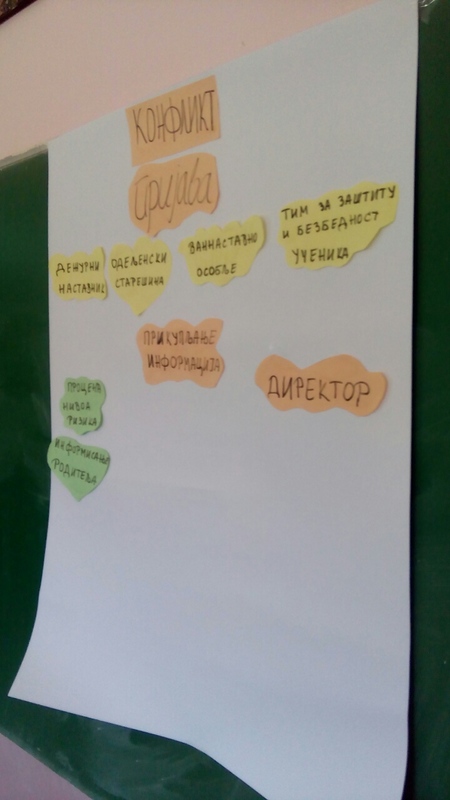 КОНФЛИКТ
Пријава
ДЕЖУРНИ
НАСТАВНИК
ОДЕЉЕНСКИ
СТАРЕШИНА
ВАННАСТАВНО
ОСОБЉЕ
ТИМ ЗА ЗАШТИТУ
И БЕЗБЕДНОСТ
УЧЕНИКА
ПРИКУПЉАЊЕ
ИНФОРМАЦИЈА
ДИРЕКТОР
ПРОЦЕНА
НИВОА
РИЗИКА
ИНФОРМИСАЊЕ
РОДИТЕЉА